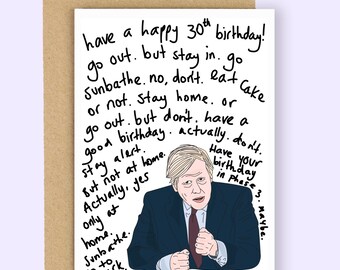 have a happy 30th birthday!
go out. but stay in. go
sunbathe. no, don't. eat cake
or not. stay home. or
go out. but don't. have a
good birthday. actually. don't.
stay alert.
But not at home.
Actually, yes
only at
home.
sunbathe.
Have your
birthday
in phase 3.
maybe.